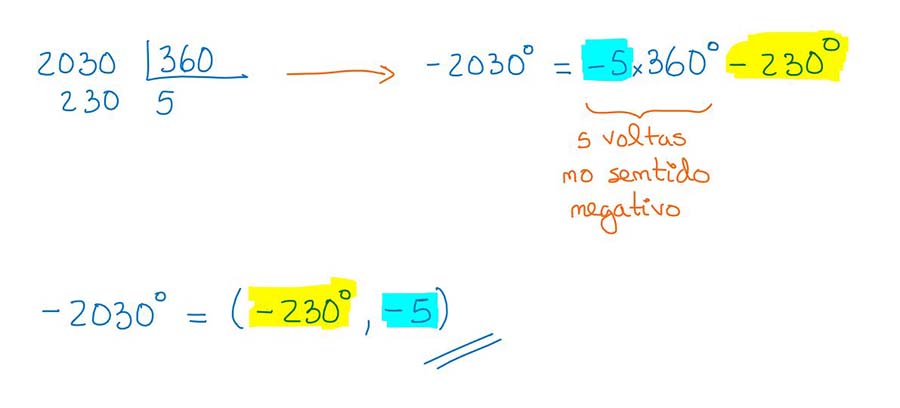 2030 |360 → -2030° = -5×360° - 230°
230 5
5 voltas
no sentido
negativo
-2030° = (-230°, -5)